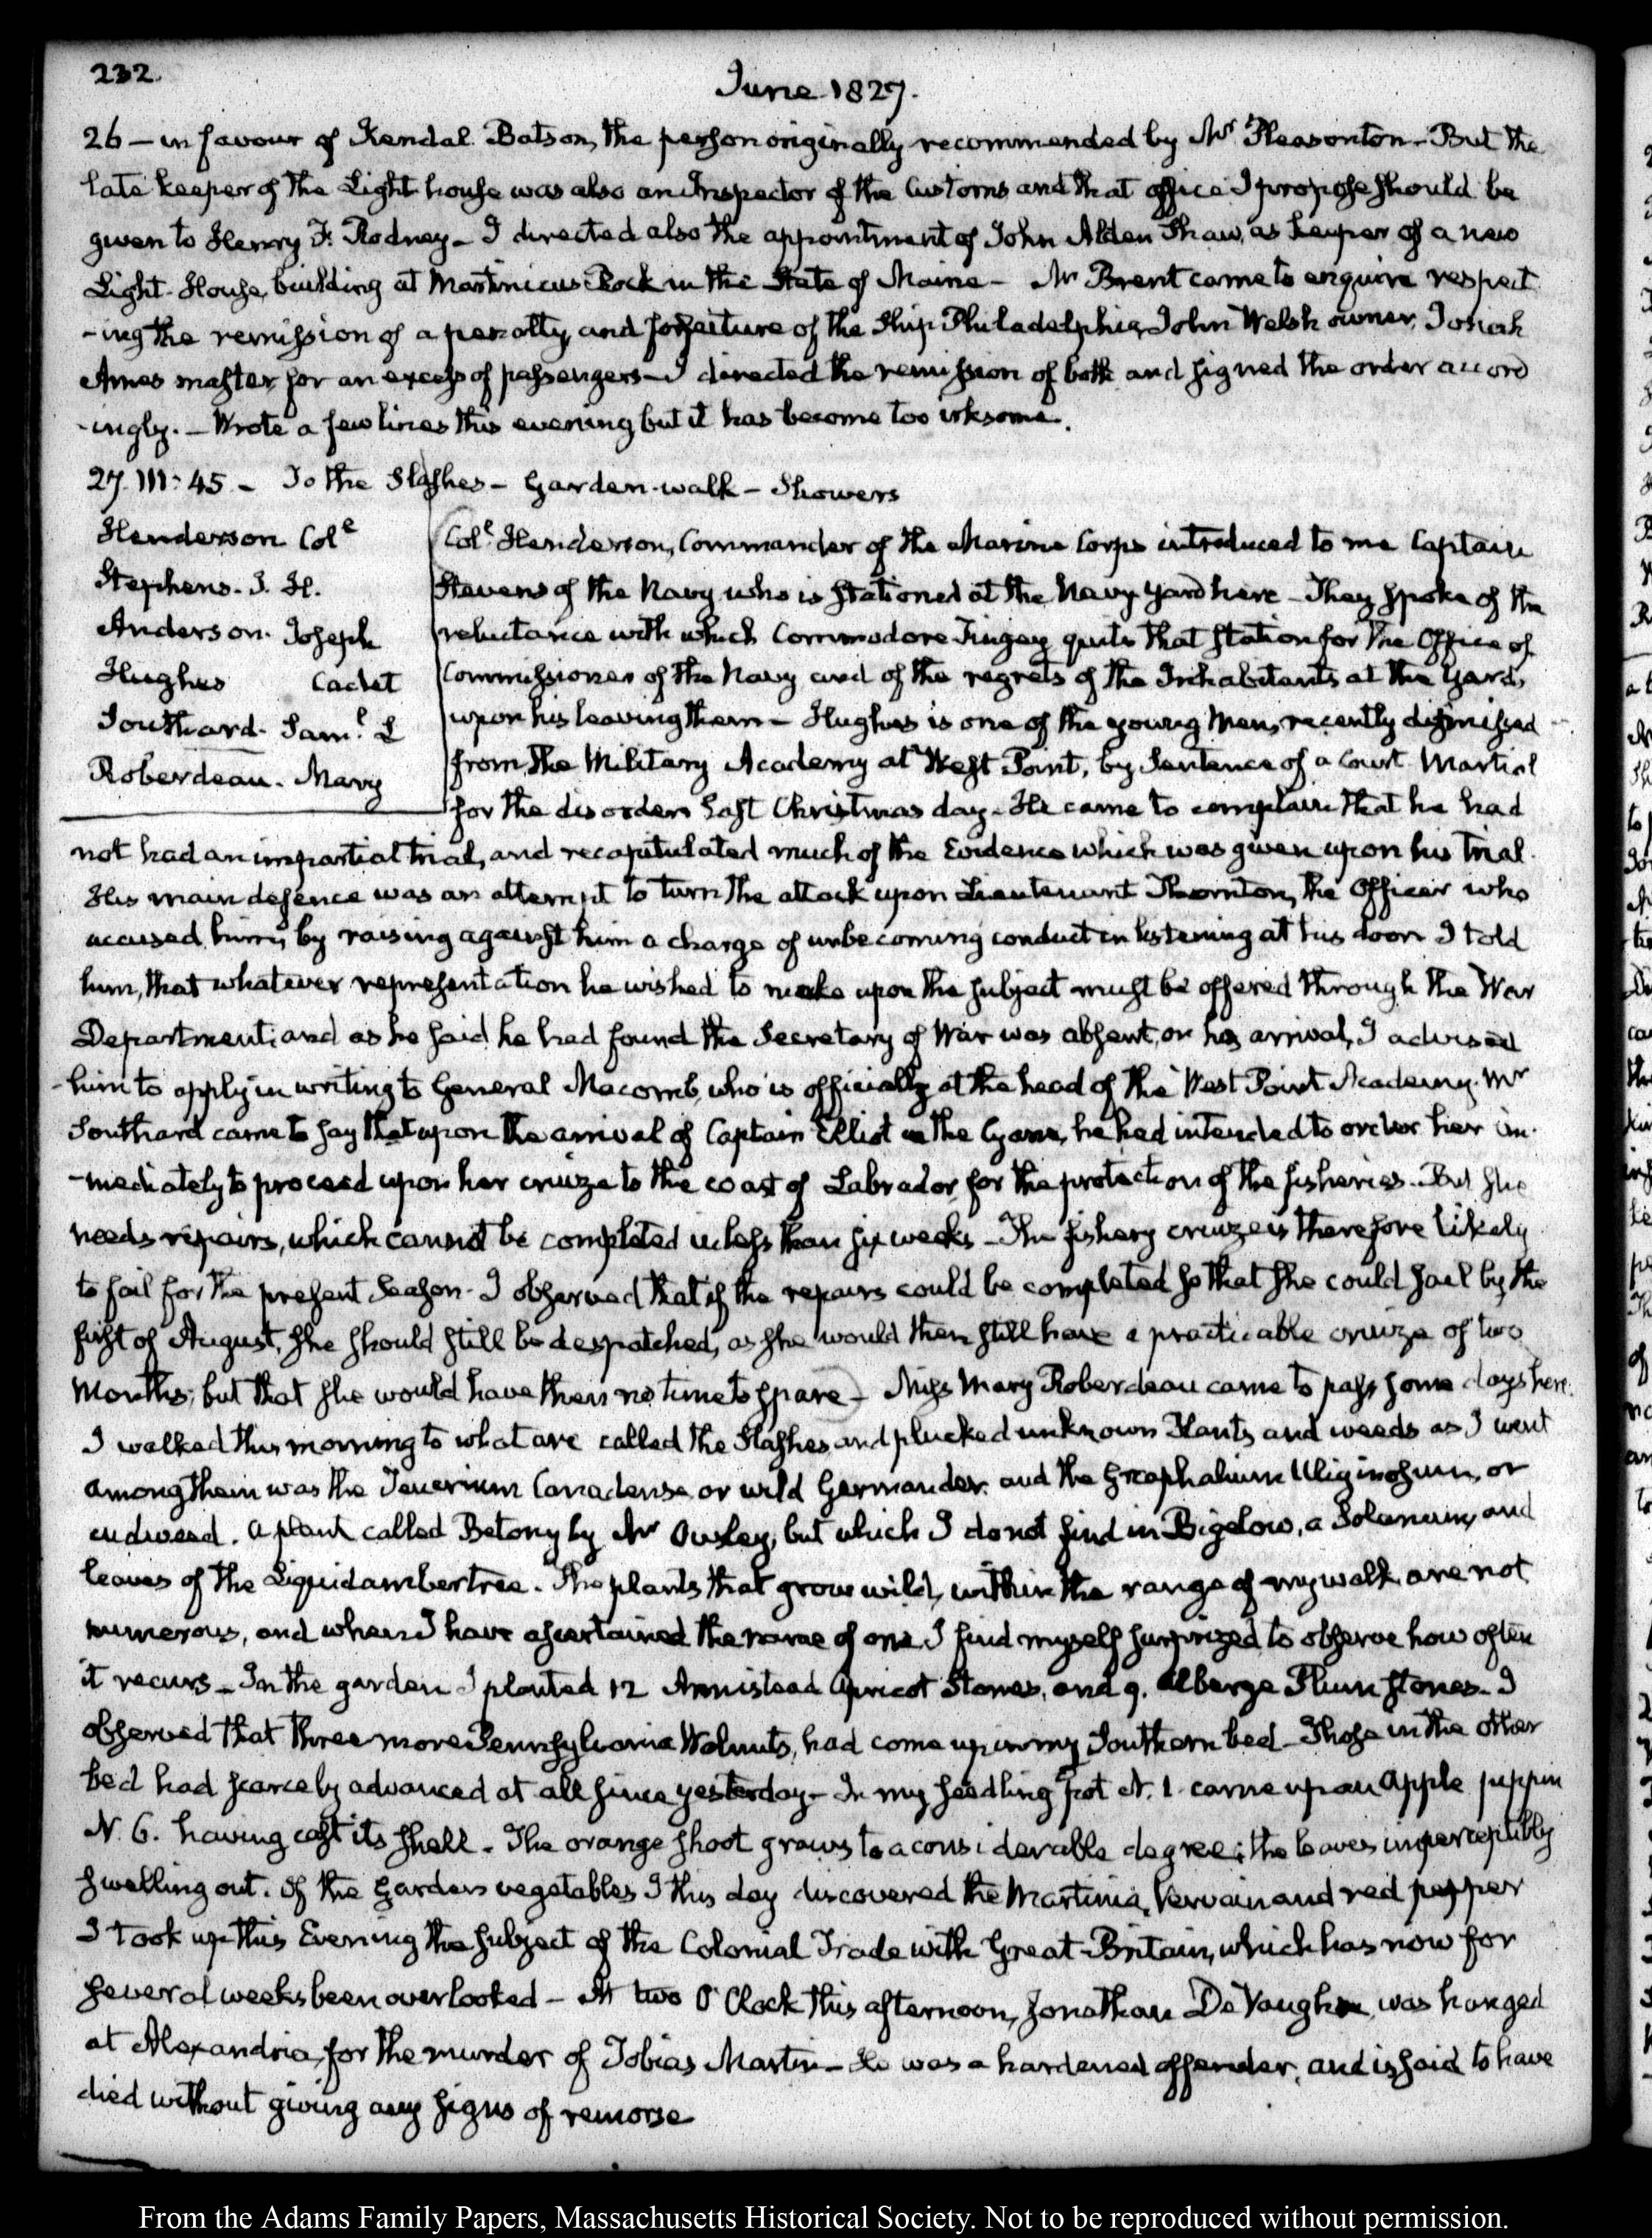 232.
June 1827.
26 — in favour of Kendal Batson, the person originally recommended by Mr Pleasonton — But the
late keeper of the Light house was also an Inspector of the Customs and that office I propose should be
given to Henry F. Rodney — I directed also the appointment of John Alden Shaw, as keeper of a new
Light-House, building at Martinicus Rock in the State of Maine — Mr Brent came to enquire respect
-ing the remission of a penalty, and forfeiture of the Ship Philadelphia, John Welsh owner, Josiah
Ames master, for an excess of passengers — I directed the remission of both and signed the order accord
-ingly. — Wrote a few lines this evening but it has become too irksome.
27. III: 45 — To the Slashes — Garden-walk — Showers
Henderson Col.e
Stephens. J. H.
Anderson. Joseph
Hughes Cadet
Southard. Sam.l L
Roberdeau. Mary
Col.e Henderson, Commander of the Marine Corps introduced to me Captain
Stevens of the Navy who is stationed at the Navy Yard here — They spoke of the
reluctance with which Commodore Tingey quits that station for the Office of
Commissioner of the Navy and of the regrets of the Inhabitants at the Yard,
upon his leaving them — Hughes is one of the young Men, recently dismissed
from the Military Academy at West Point, by Sentence of a Court Martial
for the disorders last Christmas day — He came to complain that he had
not had an impartial trial, and recapitulated much of the Evidence which was given upon his trial.
His main defence was an attempt to turn the attack upon Lieutenant Thornton, the Officer who
accused him, by raising against him a charge of unbecoming conduct in listening at his door I told
him, that whatever representation he wished to make upon the subject must be offered through the War
Department; and as he said he had found the Secretary of War was absent, on his arrival, I advised
him to apply in writing to General Macomb, who is officially at the head of the West Point Academy. Mr
Southard came to say that upon the arrival of Captain Elliot in the Cyane, he had intended to order her im-
-mediately to proceed upon her cruize to the coast of Labrador, for the protection of the fisheries. But she
needs repairs, which cannot be completed in less than six weeks — The fishery cruize is therefore likely
to fail for the present Season. I observed that if the repairs could be completed so that she could sail by the
first of August, she should still be despatched, as she would then still have a practicable cruize of two
Months; but that she would have then no time to spare — Miss Mary Roberdeau came to pass some days here.
I walked this morning to what are called the Slashes and plucked unknown Plants and weeds as I went
among them was the Teucrium Canadense or wild Germander, and the Gnaphalium Uliginosum, or
cudweed. A plant called Betony by Mr Ousley, but which I do not find in Bigelow, a Solanum, and
leaves of the Liquidambertree. The plants that grow wild, within the range of my walk are not
numerous, and when I have ascertained the name of one, I find myself surprized to observe how often
it recurs — In the garden I planted 12 Annistead Apricot Stones, and 9. Alberge Plum stones. I
observed that three more Pennsylvania Walnuts, had come up in my Southern bed — Those in the other
bed had scarcely advanced at all since yesterday — In my seedling pot N. 1 came up an Apple pippin
N. 6. having cast its shell. The orange shoot grows to a considerable degree; the leaves imperceptibly
swelling out. Of the Garden vegetables I this day discovered the Martinia, Vervain and red pepper
I took up this Evening the subject of the Colonial Trade with Great-Britain, which has now for
several weeks been overlooked — At two O'Clock this afternoon, Jonathan De Vaughn, was hanged
at Alexandria, for the murder of Tobias Martin — He was a hardened offender, and is said to have
died without giving any signs of remorse
From the Adams Family Papers, Massachusetts Historical Society. Not to be reproduced without permission.